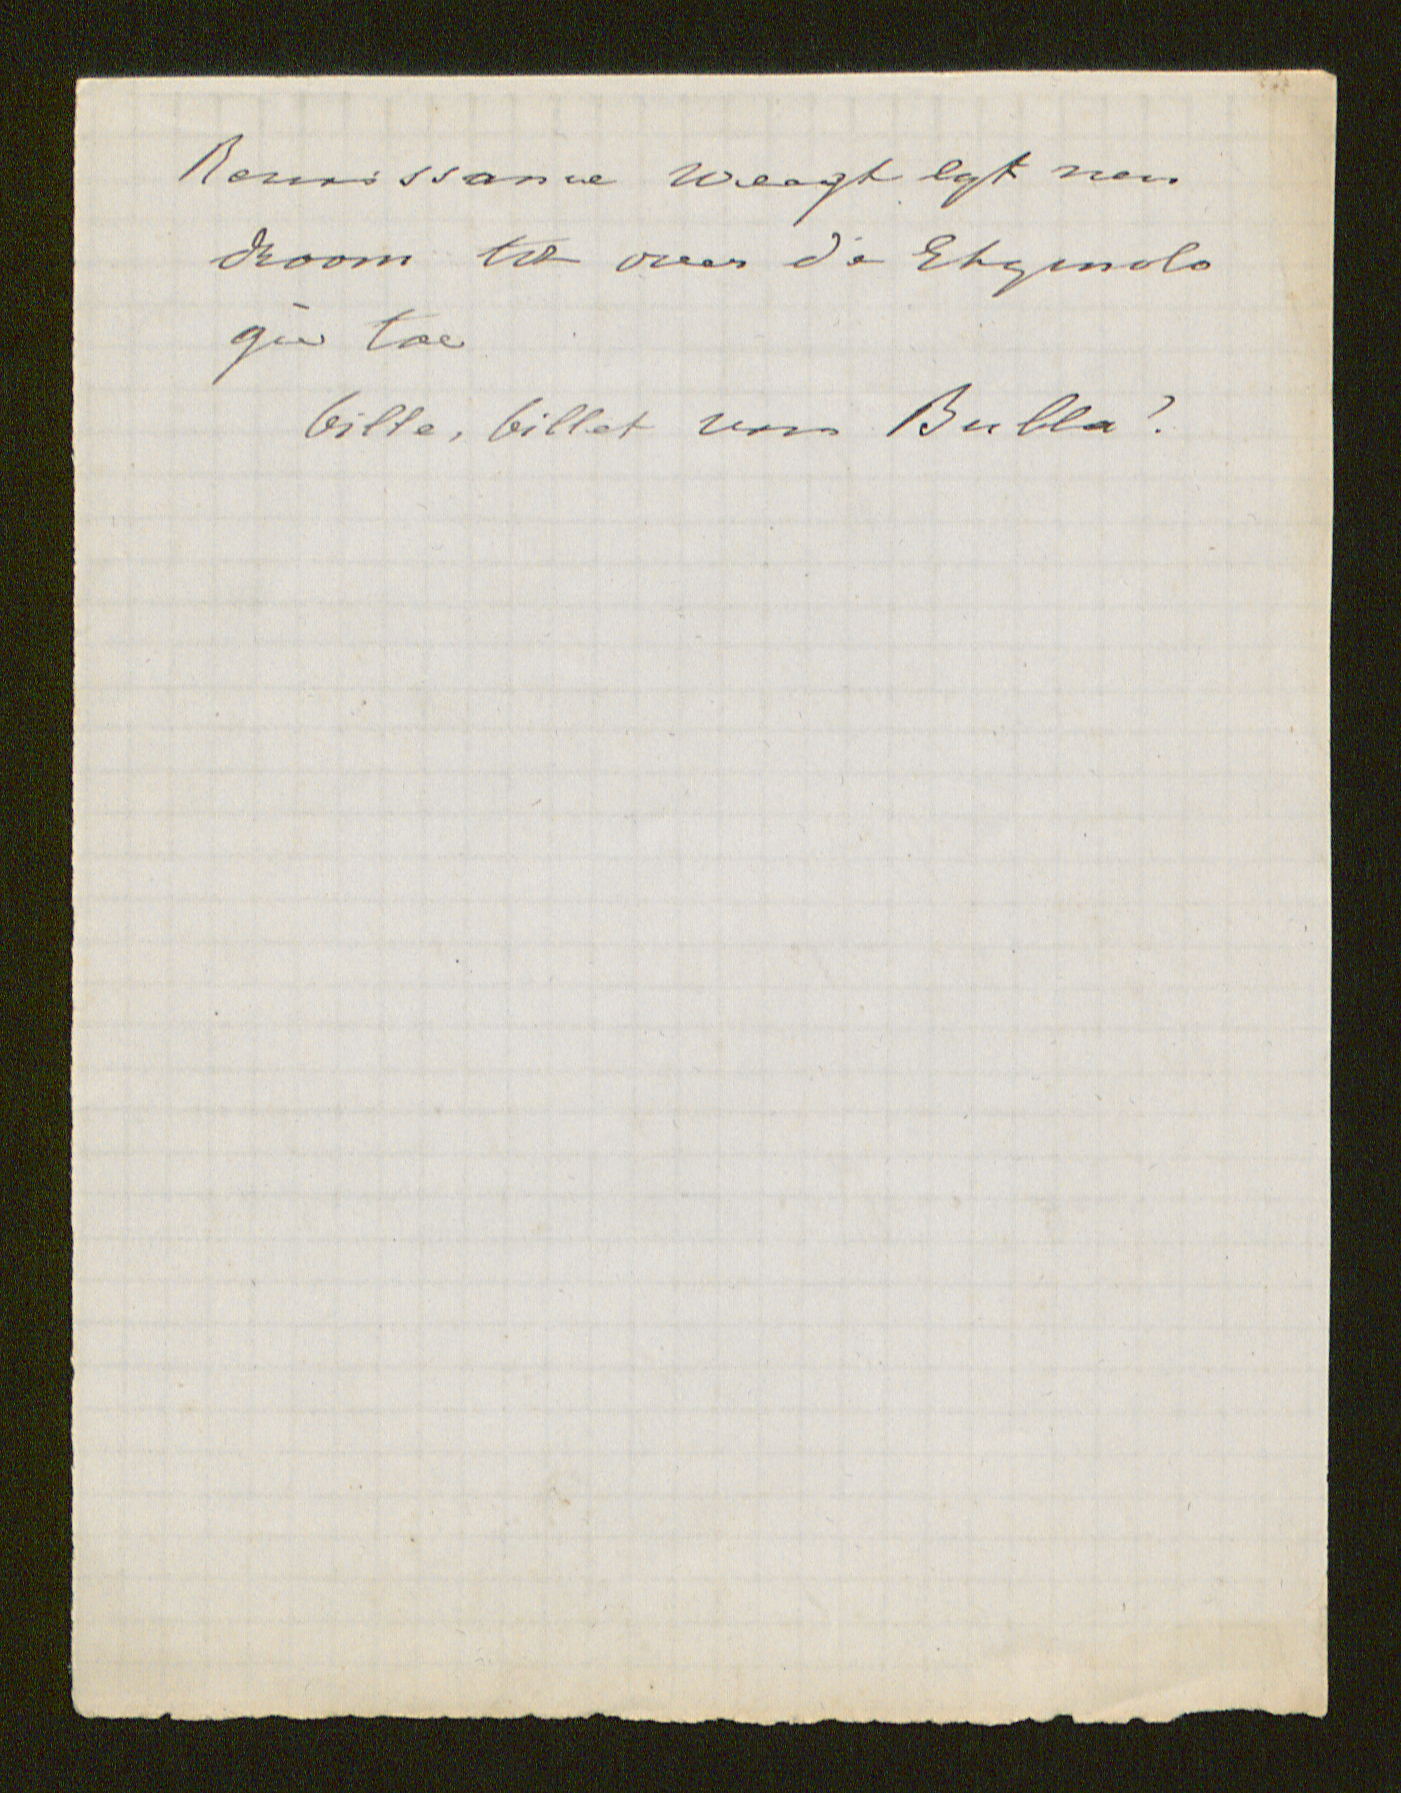 Renaissance vraagt egt nen
droom tot over de Etymolo
gie toe
bille, billet van Bulla?